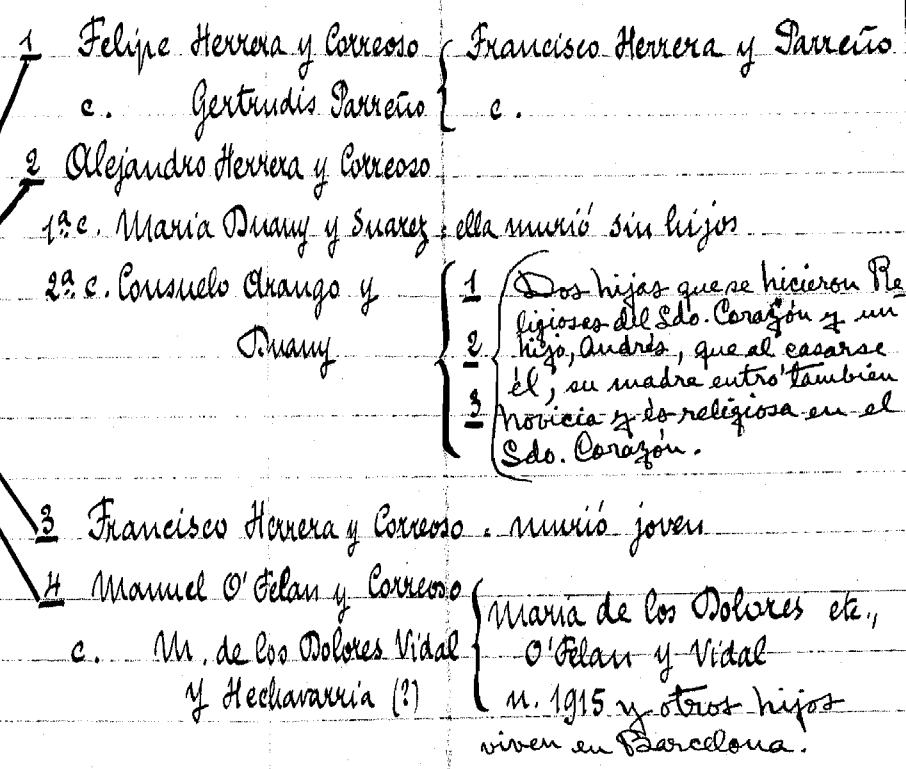 1 Felipe Herrera y Correoso { Francisco Herrera y Parreño
c. Gertrudis Parreño { c.
2 Alejandro Herrera y Correoso
1ª c. Maria Duany y Suarez : ella murió sin hijos
2ª c. Consuelo Arango y
Duany
1 Dos hijas que se hicieron Re-
ligiosas del Sdo. Corazón y un
2 hijo, Andrés, que al casarse
él, su madre entró también
3 novicia y es religiosa en el
Sdo. Corazón.
3 Francisco Herrera y Correoso . murió joven
4 Manuel O'Felan y Correoso
c. M. de los Dolores Vidal
y Hechavarria (?)
Maria de los Dolores etc.,
O'Felan y Vidal
n. 1915 y otros hijos
viven en Barcelona.